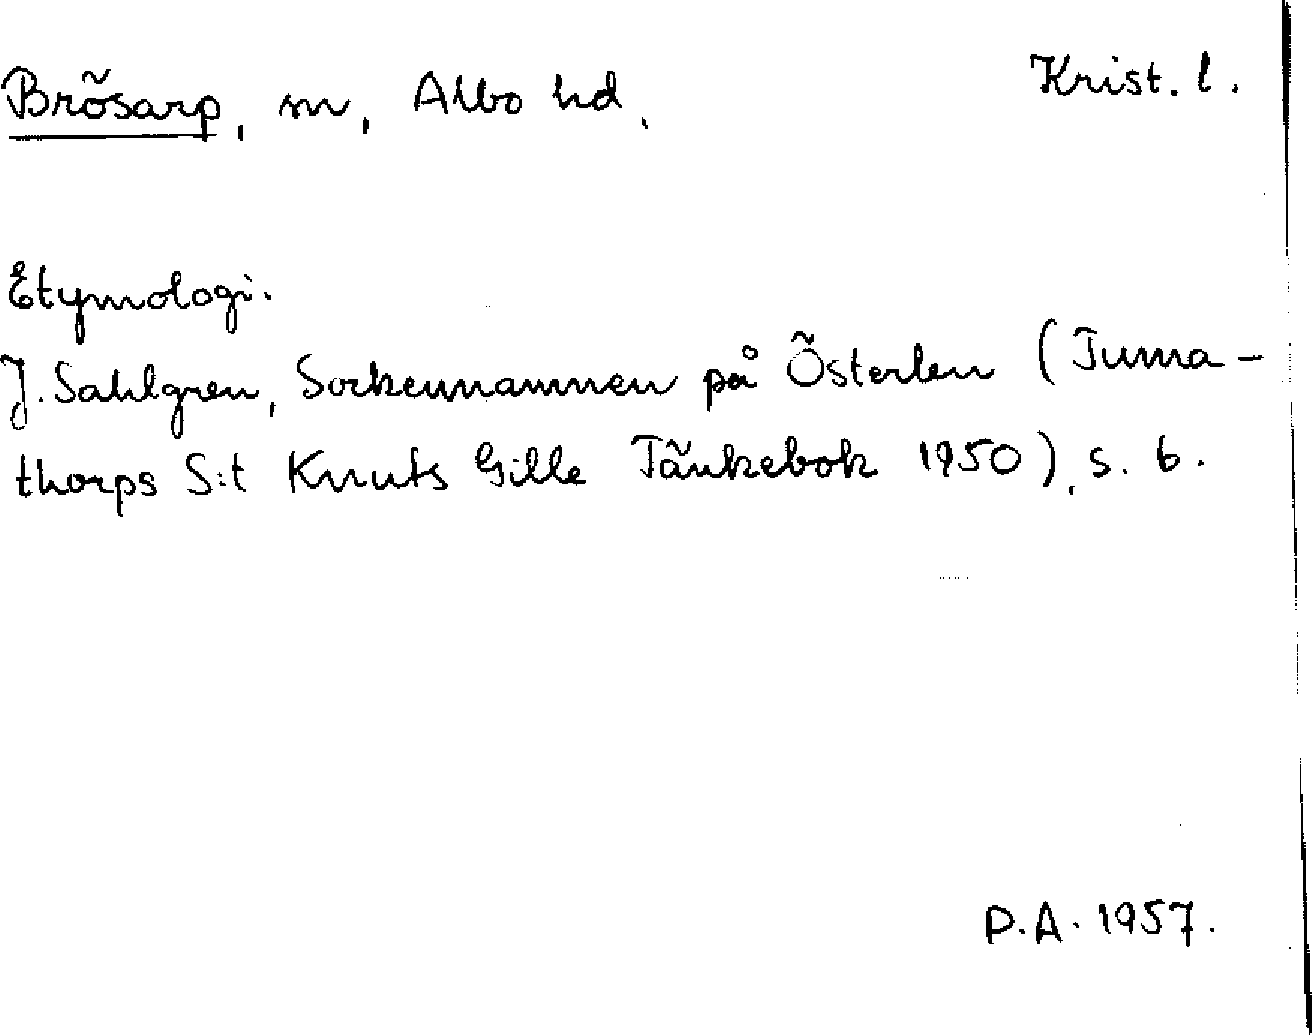 Brösarp, sn, Albo hd, Krist. l.
Etymologi.
J. Sahlgren, Sockennamnen på Österlen (Tuma-
thorps S:t Knuts Gille Tänkebok 1950), s. 6.
P.A. 1957.